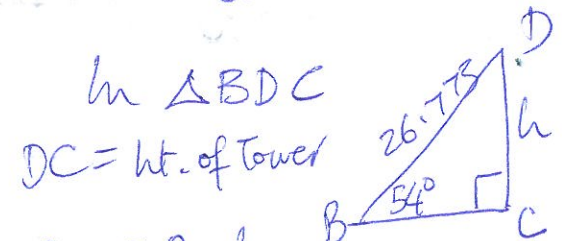 In △BDC
DC = ht. of Tower
D
26.773
h
54°
B
C